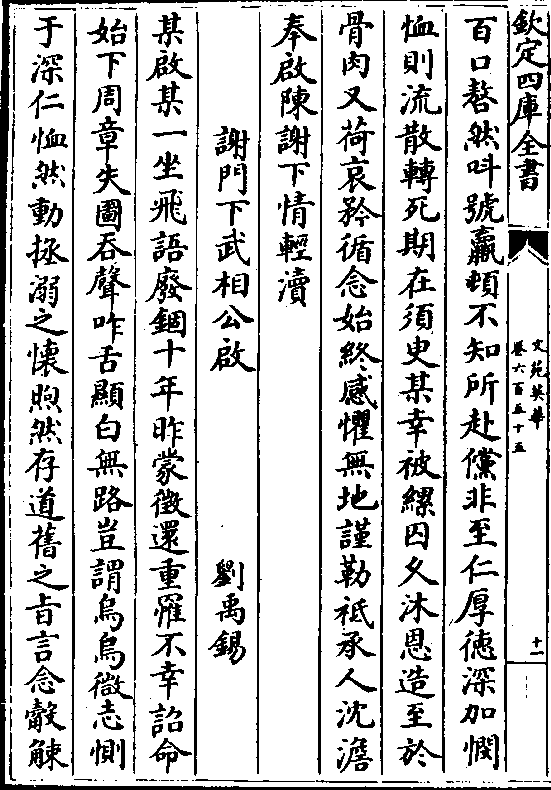 欽定四庫全書
文苑英華
卷六百五十五
十一
百口嗸然呌號羸頓不知所赴儻非至仁厚徳深加憫
恤則流散轉死期在須臾某幸被縲囚久沐恩造至於
骨肉又荷哀矜循念始終感懼無地謹勒祗承人沈澹
奉啟陳謝下情輕瀆
謝門下武相公啟
劉禹錫
某啟某一坐飛語廢錮十年昨蒙徵還重罹不幸詔命
始下周章失圖吞聲咋舌顯白無路豈謂烏鳥微志惻
于深仁恤然動拯溺之懷煦然存道舊之旨言念觳觫